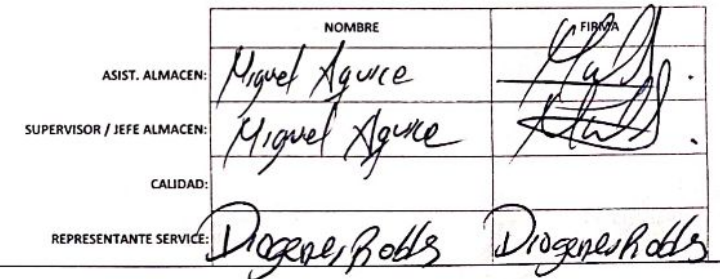 NOMBRE FIRMA
ASIST. ALMACEN: Miguel Aguire
SUPERVISOR / JEFE ALMACEN: Miguel Aguire
CALIDAD:
REPRESENTANTE SERVICE: Diogenes Robls Diogenes Robls